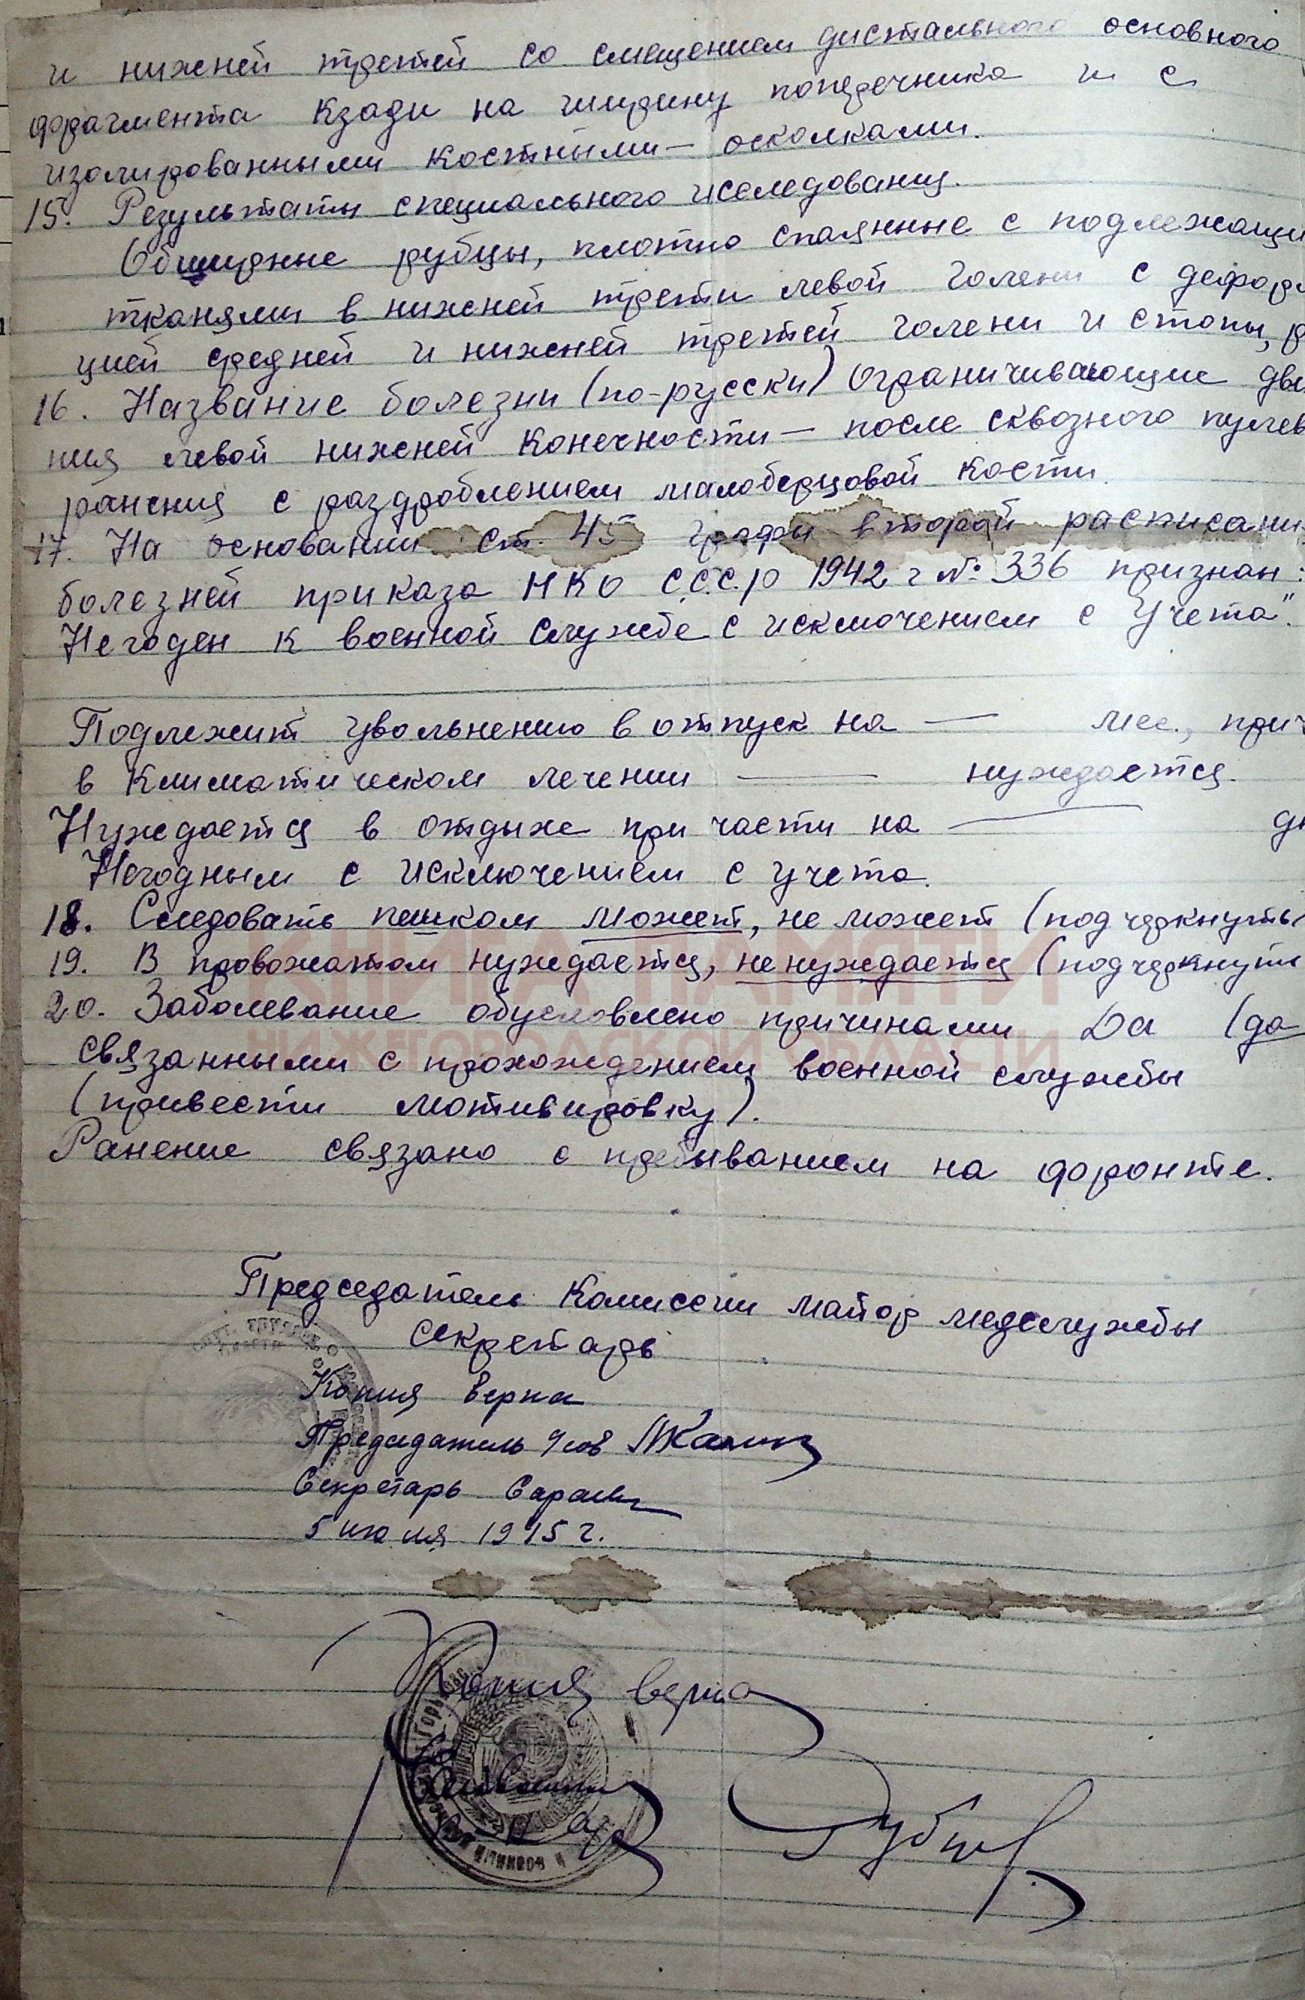 и нижней третей со смещением дистального основного
фрагмента кзади на ширину поперечника и с
изолированными костными — осколками.
15. Результаты специального иселедования.
Обширные рубцы, плотно спаянные с подлежащи
тканями в нижней трети левой голени с дефор
цией средней и нижней третей голени и стопы, р
16. Название болезни (по-русски) Ограничивающие дви
ния левой нижней конечности — после сквозного пулев
ранения с раздроблением малоберцовой кости
17. На основании ст. 45 графы второй расписани
болезней приказа НКО С.С.С.Р 1942 г № 336 признан:
Негоден к военной службе с исключением с учета".
Подлежит увольнению в отпуск на — мес., прич
в климатическом лечении — нуждается.
Нуждается в отдыхе при части на — дн
Негодным с исключением с учета.
18. Следовать пешком может, не может (подчеркнуть
19. В провожатом нуждается, ненуждается (подчеркнуть
20. Заболевание обусловлено причинами Да (да
связанными с прохождением военной службы
(привести мотивировку).
Ранение связано с пребыванием на фронте.
Председатель Комиссии майор медслужбы
секретарь
Копия верна
Председатель
Секретарь
5 июля 1945 г.
Копия верна
КНИГА ПАМЯТИ
НИЖЕГОРОДСКОЙ ОБЛАСТИ